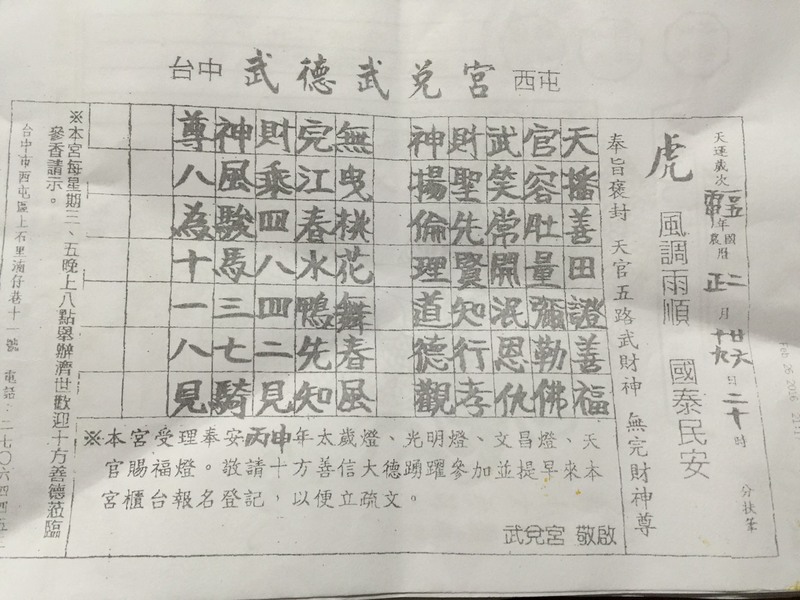 台中 武德武兌宮 西屯
天運歲次 年 國曆 農曆 二 正 月 廿六 十九 日 二十時 分扶筆
虎 風調雨順 國泰民安
奉旨褒封 天官五路武財神 無完財神尊
天播善田證善福
官容肚量彌勒佛
武笑常開泯恩仇
財聖先賢知行孝
神揚倫理道德觀
無曳桃花舞春風
完江春水鴨先知
財乘四八四二見
神風駿馬三七騎
尊八為十一八見
※本宮受理奉安丙申年太歲燈、光明燈、文昌燈、天
官賜福燈。敬請十方善信大德踴躍參加並提早來本
宮櫃台報名登記，以便立疏文。
武兌宮 敬啟
※本宮每星期三、五晚上八點舉辦濟世歡迎十方善德蒞臨
參香請示。
台中市西屯區上石里湳仔巷十一號 電話：二七〇六四四五